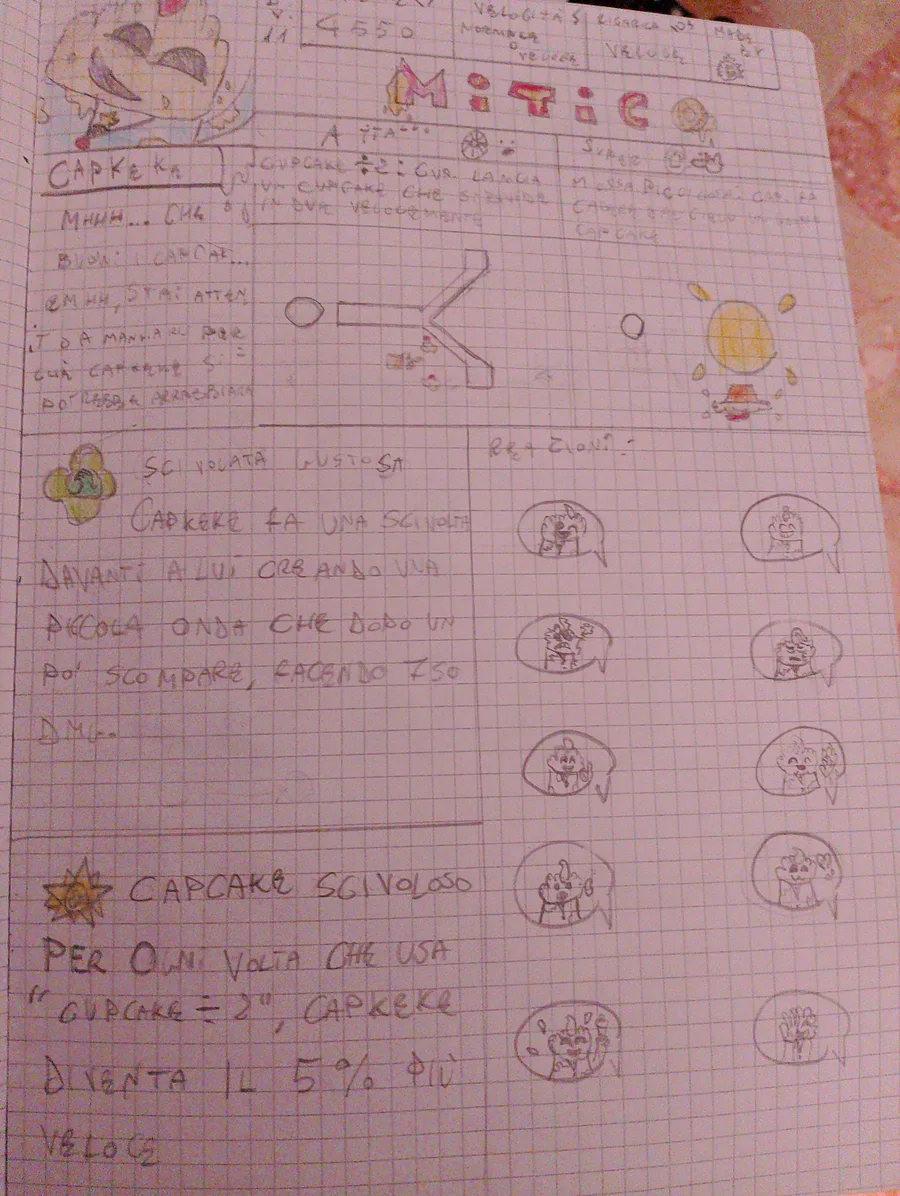 11
4550
VELOCITÀ
NORMALE
O
VELOCE
RICARICA
VELOCE
MADE
BY
MITIC
CAPKEKA
MHHH... CHE
BUONI I CAPCAK...
EMHH, STAI ATTEN
DA MANGIARE PER
CAPKEKE SI
POTREBBE ARRABBIARE
ATTA...
CUPCAKE ÷2: CUP. LANCIA
UN CUPCAKE CHE SI DIVIDE
IN DUE VELOCEMENTE
SUPER
MOSSA PERICOLOSA:
CADERE DAL CIELO UN
CAPCAKE
SCIVOLATA GUSTOSA
CAPKEKE FA UNA SCIVOLTA
DAVANTI A LUI CREANDO UNA
PICCOLA ONDA CHE DOPO UN
PO' SCOMPARE, FACENDO 750
DMG.
REAZIONI:
CAPCAKE SCIVOLOSO
PER OGNI VOLTA CHE USA
"CUPCAKE ÷ 2", CAPKEKE
DIVENTA IL 5% PIÙ
VELOCE